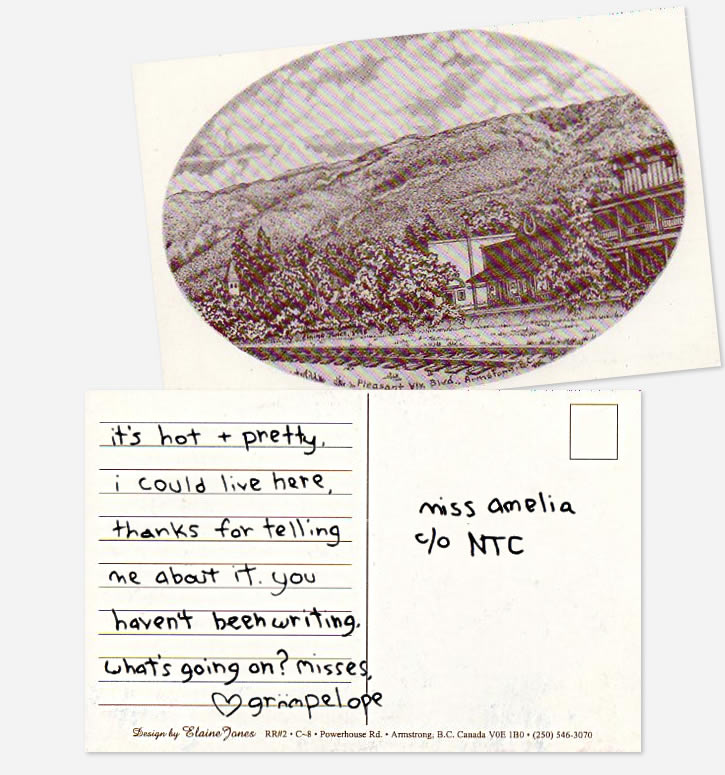 Pleasant Vly Blvd., Armstrong
it's hot + pretty.
i could live here,
thanks for telling
me about it. you
haven't been writing.
what's going on? misses,
♡ griimpelope
miss amelia
c/o NTC
Design by Elaine Jones RR#2 • C-8 • Powerhouse Rd. • Armstrong, B.C. Canada V0E 1B0 • (250) 546-3070